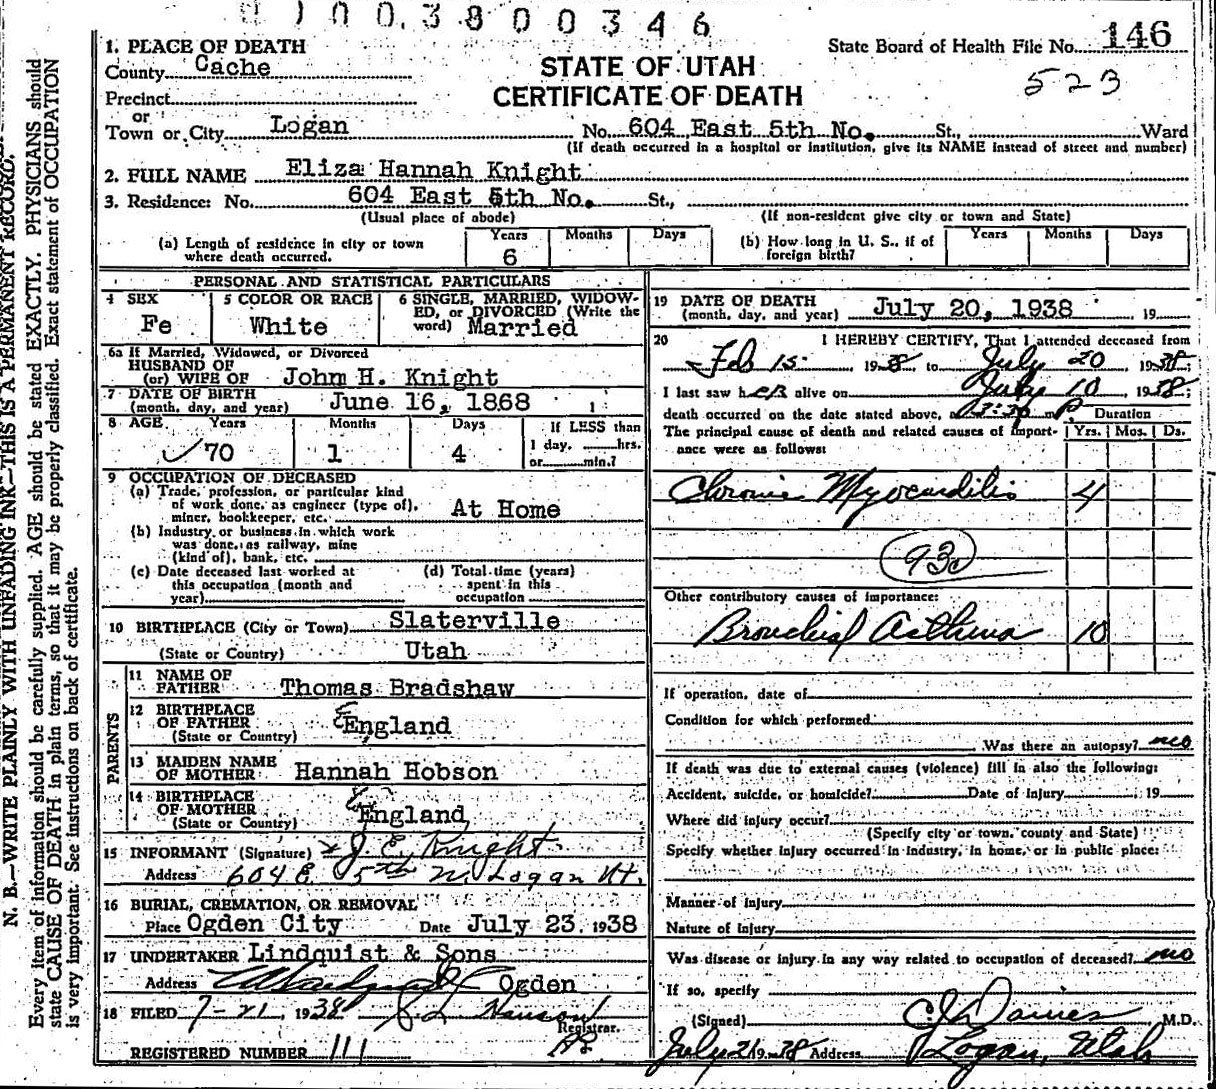 003800346
1. PLACE OF DEATH
County Cache
State Board of Health File No. 146
STATE OF UTAH
523
CERTIFICATE OF DEATH
Precinct
or
Town or City Logan No. 604 East 5th No. St., Ward
(If death occurred in a hospital or institution, give its NAME instead of street and number)
2. FULL NAME Eliza Hannah Knight
3. Residence: No. 604 East 5th No. St.,
(Usual place of abode) (If non-resident give city or town and State)
(a) Length of residence in city or town where death occurred. Years 6 Months Days
(b) How long in U. S., if of foreign birth? Years Months Days
PERSONAL AND STATISTICAL PARTICULARS
4 SEX Fe
5 COLOR OR RACE White
6 SINGLE, MARRIED, WIDOW-
ED, or DIVORCED (Write the
word) Married
6a If Married, Widowed, or Divorced
HUSBAND OF
(or) WIFE OF John H. Knight
7 DATE OF BIRTH
(month, day, and year) June 16, 1868
8 AGE Years Months Days If LESS than
70 1 4 1 day, hrs.
or min.?
9 OCCUPATION OF DECEASED
(a) Trade, profession, or particular kind
of work done, as engineer (type of),
miner, bookkeeper, etc. At Home
(b) Industry or business in which work
was done, as railway, mine
(kind of), bank, etc.
(c) Date deceased last worked at
this occupation (month and
year)
(d) Total time (years)
spent in this
occupation
10 BIRTHPLACE (City or Town) Slaterville
(State or Country) Utah
PARENTS
11 NAME OF
FATHER Thomas Bradshaw
12 BIRTHPLACE
OF FATHER England
(State or Country)
13 MAIDEN NAME
OF MOTHER Hannah Hobson
14 BIRTHPLACE
OF MOTHER England
(State or Country)
15 INFORMANT (Signature) x J. E. Knight
Address 604 E. 5th N. Logan Ut.
16 BURIAL, CREMATION, OR REMOVAL
Place Ogden City Date July 23, 1938
17 UNDERTAKER Lindquist & Sons
Address Ogden
18 FILED 7-21, 1938 Registrar.
REGISTERED NUMBER 111
19 DATE OF DEATH
(month, day, and year) July 20, 1938 19
20 I HEREBY CERTIFY, That I attended deceased from
Feb 15 1938 to July 20 1938;
I last saw her alive on July 10 1938;
death occurred on the date stated above, at 3:30 m P Duration
The principal cause of death and related causes of import-
ance were as follows: Yrs. Mos. Ds.
Chronic Myocarditis 4
Other contributory causes of importance:
Bronchial Asthma 10
If operation, date of
Condition for which performed
Was there an autopsy? no
If death was due to external causes (violence) fill in also the following:
Accident, suicide, or homicide? Date of injury 19
Where did injury occur?
(Specify city or town, county and State)
Specify whether injury occurred in industry, in home, or in public place:
Manner of injury
Nature of injury
Was disease or injury in any way related to occupation of deceased? no
If so, specify
(Signed) M.D.
July 21 19 38 Address Logan, Utah
N. B.—WRITE PLAINLY WITH UNFADING INK—THIS IS A PERMANENT RECORD.
Every item of information should be carefully supplied. AGE should be stated EXACTLY. PHYSICIANS should
state CAUSE OF DEATH in plain terms, so that it may be properly classified. Exact statement of OCCUPATION
is very important. See instructions on back of certificate.